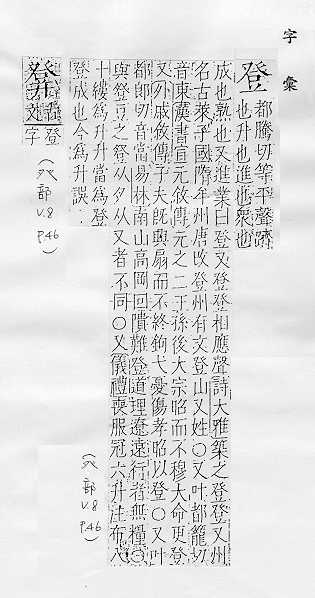 字彙
登 都騰切等平聲躋
也升也進也衆也
成也熟也又進業曰登又登登相應聲詩大雅築之登登又州
名古萊子國隋牟州唐改登州有文登山又姓○又叶都籠切
音東漢書宣元敘傳元之二王孫後大宗昭而不穆大命更登
又外戚敘傳子夫既與扇而不終鉤弋憂傷孝昭以登○又叶
都郎切音當易林南山高岡回隤難登道理遼遠行者無糧○
與豋豆之豋从夕从又者不同○又儀禮喪服冠六升注布八
十縷為升升當為登
登成也今為升誤
(癶部 V.8 P.46)
登
字
(癶部 V.8 P.46)